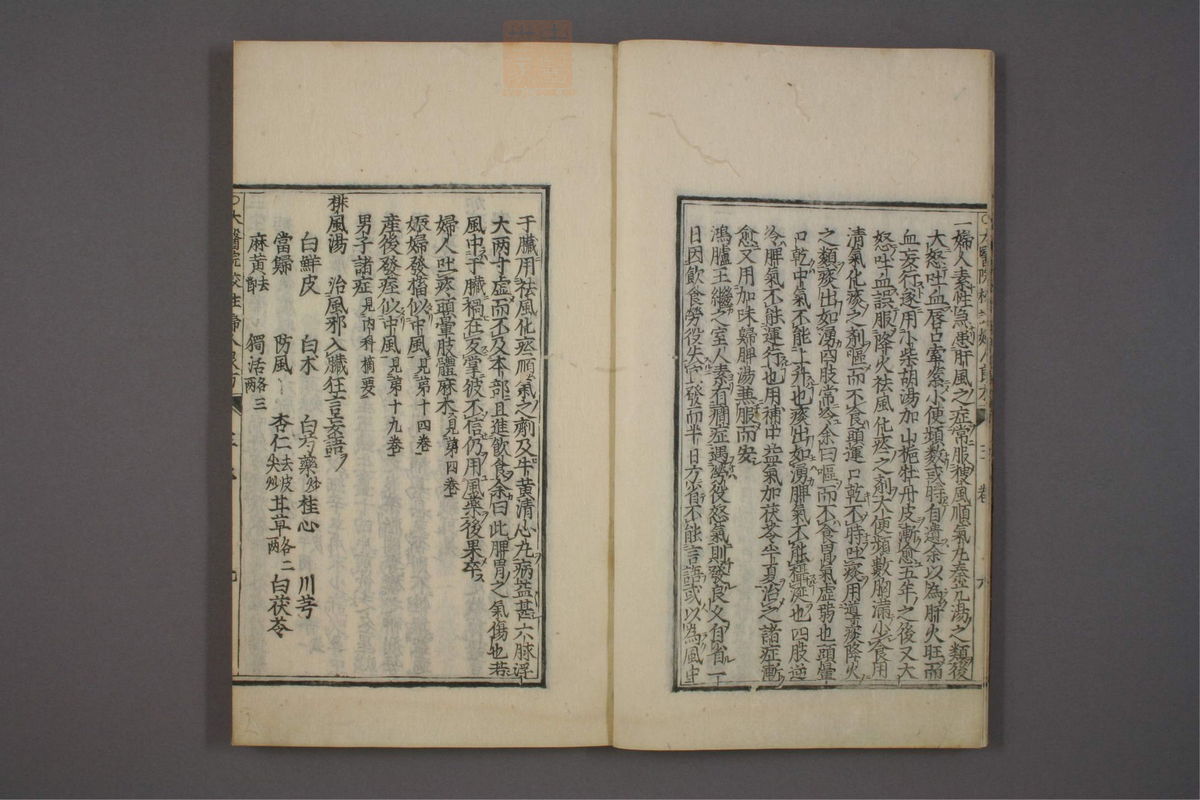 一婦人素性急患肝風之症常服搜風順氣丸秦艽湯之類後
大怒吐血唇口牽緊小便頻數或時自遺余以為肝火旺而
血妄行遂用小柴胡湯加山梔牡丹皮漸愈五年之後又大
怒吐血誤服降火祛風化痰之劑大便頻數胸滿少食用
清氣化痰之劑嘔而不食頭運口乾不時吐痰用導痰降火
之類痰出如湧四肢常冷余曰嘔而不食胃氣虛弱也頭暈
口乾中氣不能上升也痰出如湧脾氣不能攝涎也四肢逆
冷脾氣不能運行也用補中益氣加茯苓半夏治之諸症漸
愈又用加味歸脾湯兼服而安
鴻臚王繼之室人素有癇症遇勞役怒氣則發良久自省一
日因飲食勞役失宜發而半日方省不能言語或以為風中
于臟用祛風化痰順氣之劑及牛黃清心丸病益甚六脉浮
大兩寸虛而不及本部且進飲食余曰此脾胃之氣傷也若
風中于臟禍在反掌彼不信仍用風藥後果卒
婦人吐痰頭暈肢體麻木見第四卷
娠婦發搐似中風見第十四卷
產後發痙似中風見第十九卷
男子諸症見内科摘要
排風湯 治風邪入臟狂言妄語
白鮮皮 白朮 白芍藥炒 桂心 川芎
當歸 防風 杏仁去皮尖炒 甘草各二兩 白茯苓
麻黃去節 獨活各三兩
太醫院校
三卷